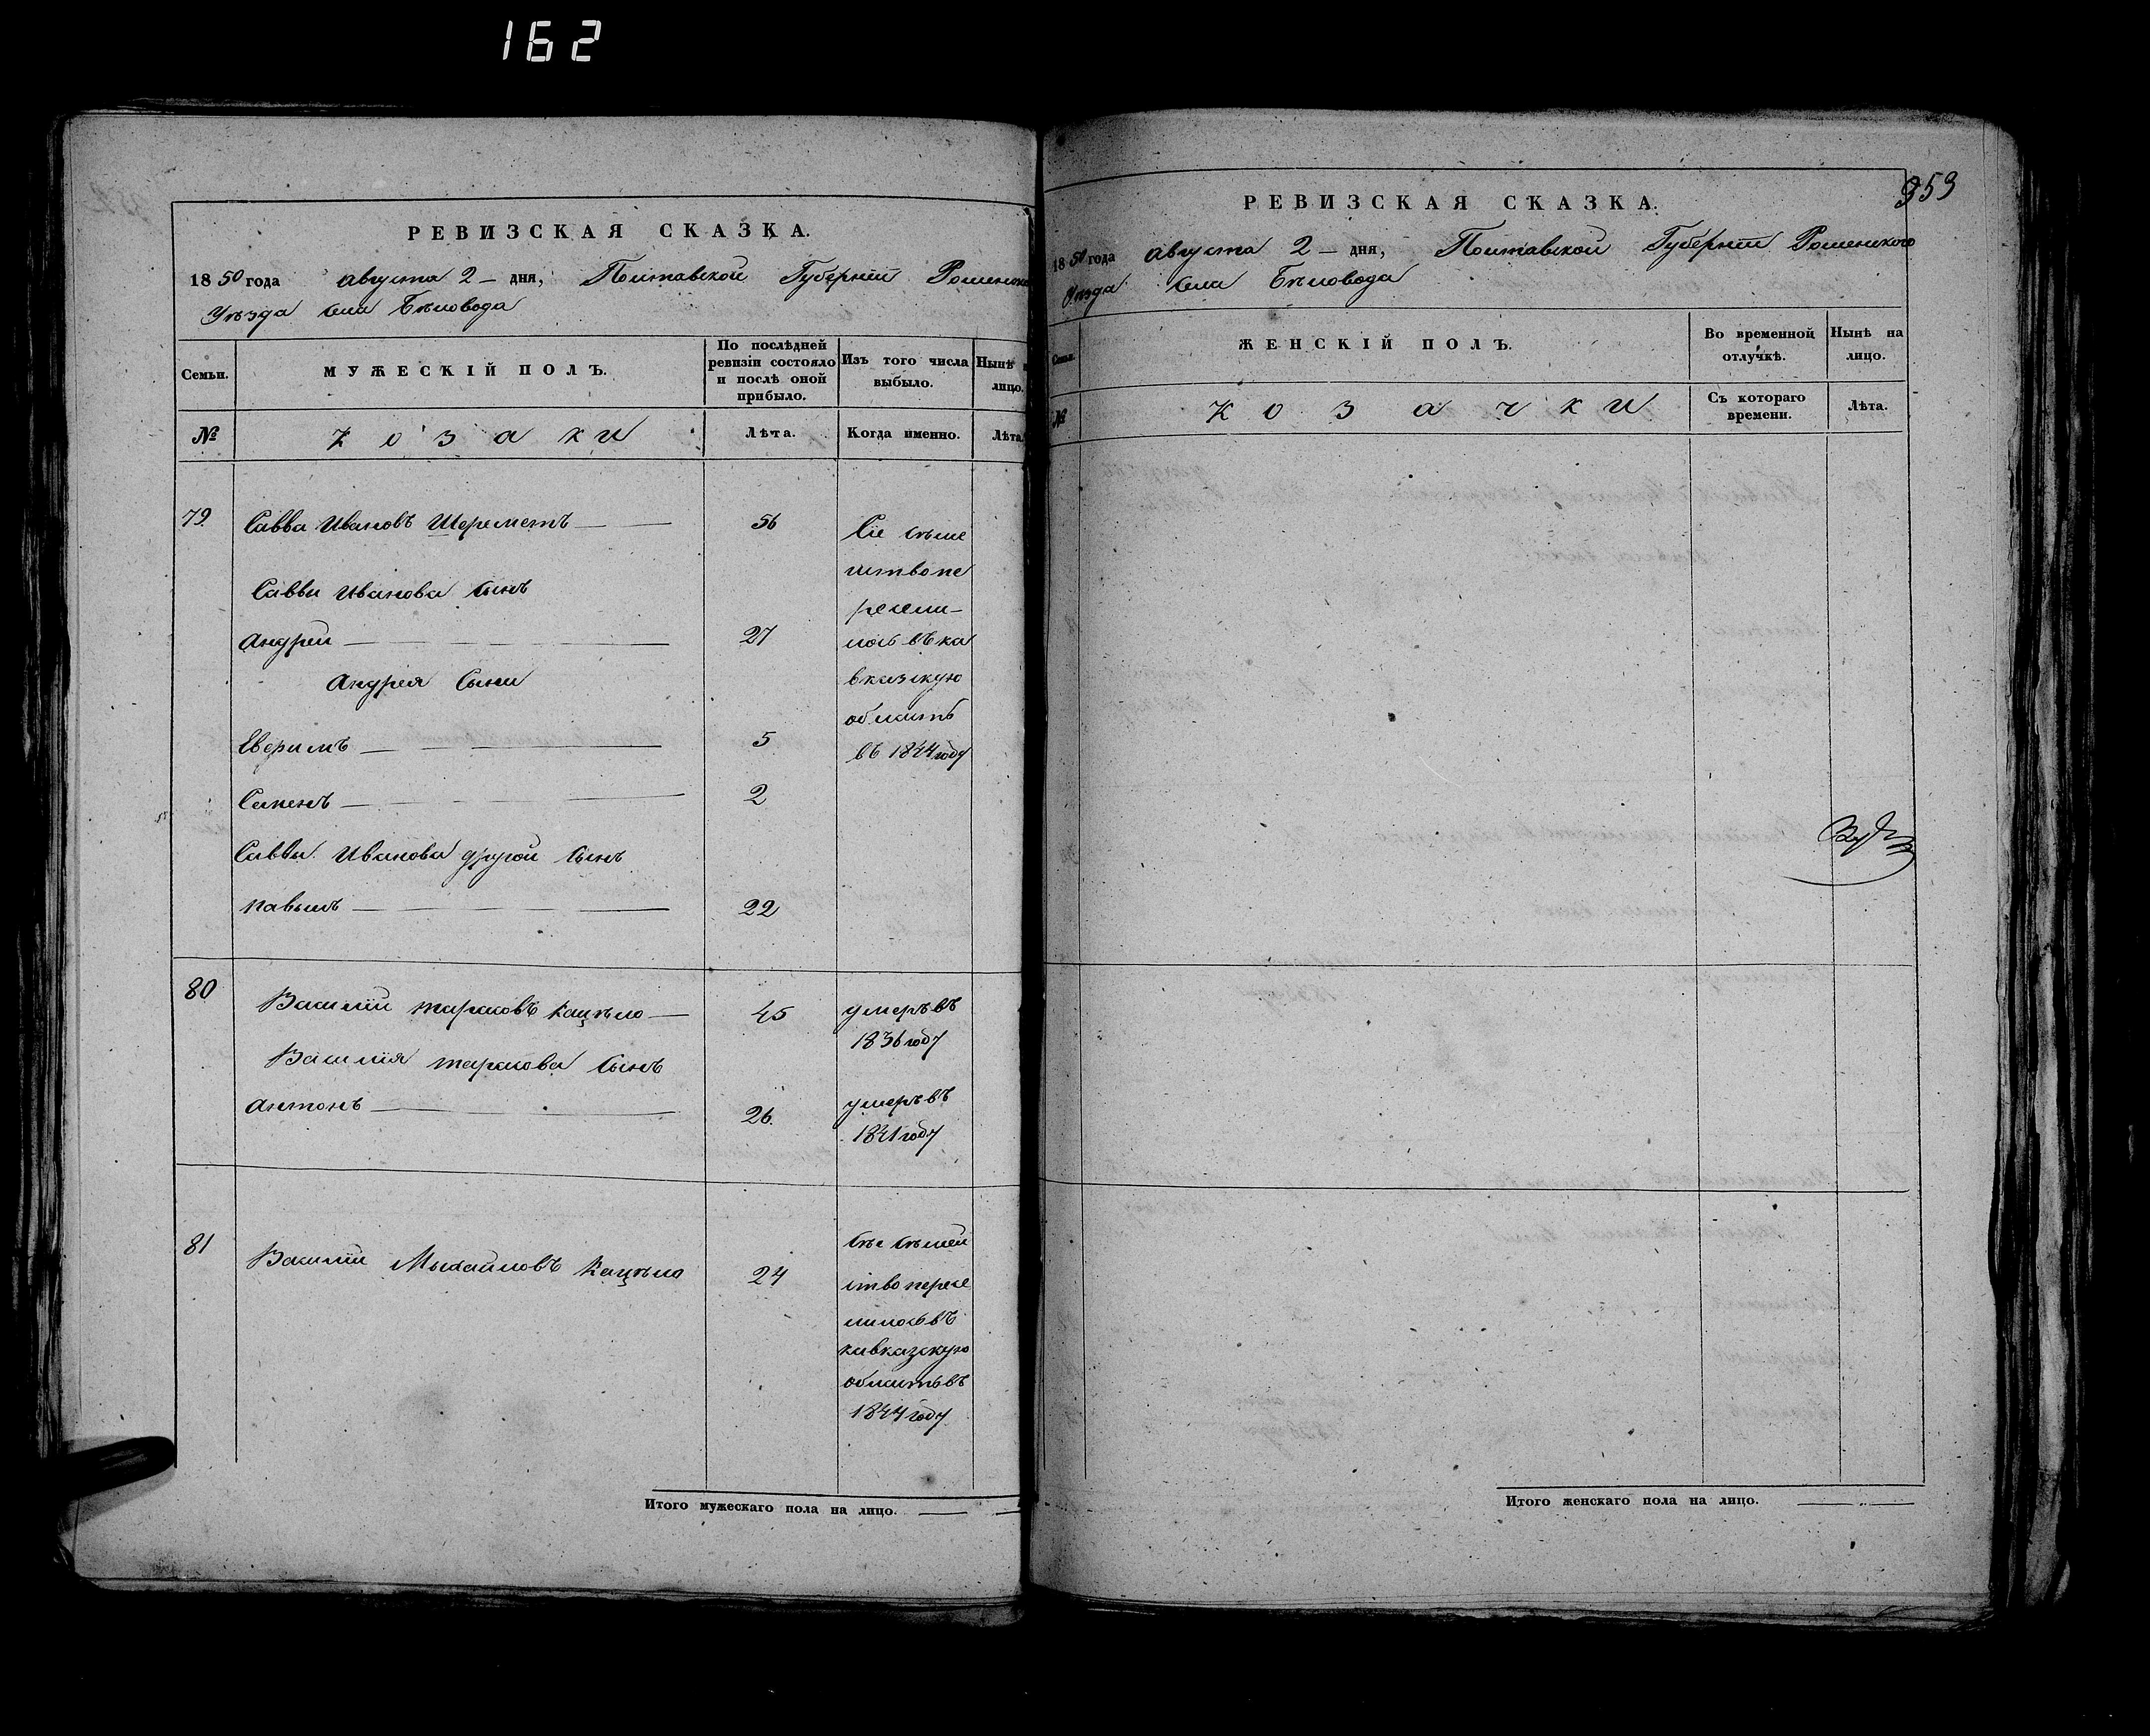 162
РЕВИЗСКАЯ СКАЗКА.
1850 года августа 2 — дня, Полтавской Губерніи Роменско
Уѣзда села Бѣловода
Семьи.
МУЖЕСКІЙ ПОЛЪ.
По послѣдней ревизіи состояло и послѣ оной прибыло.
Изъ того числа выбыло.
Нынѣ
лицо.
№
козаки
Лѣта.
Когда именно.
Лѣта
79
Савва Ивановъ Шереметъ
56
Сіе сѣме
иство пе
ресели
лось въ ка
вказскую
область
въ 1844 году
Саввы Иванова сынъ
Андрей
27
Андрея Сыны
5
2
Саввы Иванова другой сынъ
Павелъ
22
80
Василій Тарасовъ Кацѣло
45
умеръ въ
1836 году
Василія Тарасова Сынъ
Антонъ
26.
умеръ въ
1841 году
81
Василій Михайловъ Кацѣло
24
сѣмей
ство пересе
лилось въ
кавказскую
область въ
1844 году
Итого мужескаго пола на лицо.
353
РЕВИЗСКАЯ СКАЗКА.
1850 года августа 2 — дня, Полтавской Губерніи Роменского
Уѣзда села Бѣловода
Семьи.
ЖЕНСКІЙ ПОЛЪ.
Во временной отлучкѣ.
Нынѣ на лицо.
№
козачки
Съ котораго времени.
Лѣта.
Итого женскаго пола на лицо.